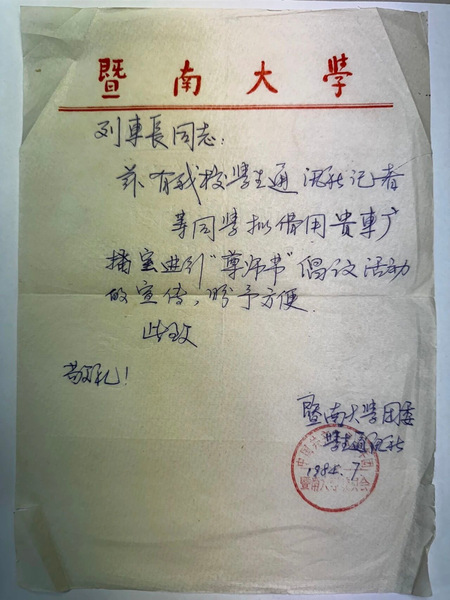 暨南大學
列車長同志：
兹有我校学生通讯社记者
等同学拟借用贵車广
播室进行“尊师节”倡议活动
的宣传，盼予方便.
此致
敬礼！
暨南大学团委
学生通讯社
1984.7
中国共
暨南大学委员会